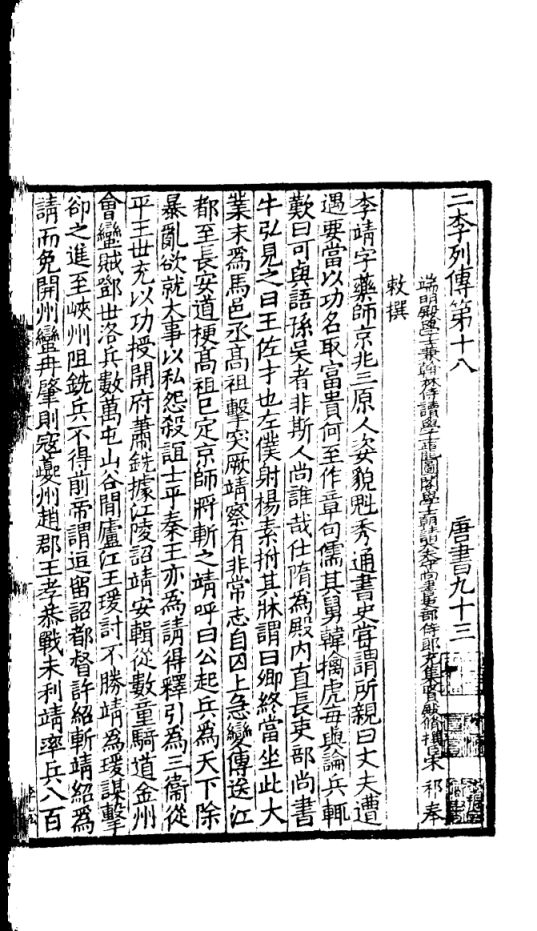 二李列傳第十八 唐書九十三
端明殿學士兼翰林侍讀學士龍圖閣學士朝請大夫守尚書吏部侍郎充集賢殿脩撰臣宋祁奉
敕撰
李靖字藥師京兆三原人姿貌魁秀通書史嘗謂所親曰丈夫遭
遇要當以功名取富貴何至作章句儒其舅韓擒虎每與論兵輒
歎曰可與語孫吳者非斯人尚誰哉仕隋為殿內直長吏部尚書
牛弘見之曰王佐才也左僕射楊素拊其牀謂曰卿終當坐此大
業末為馬邑丞高祖擊突厥靖察有非常志自囚上急變傳送江
都至長安道梗高祖已定京師將斬之靖呼曰公起兵為天下除
暴亂欲就大事以私怨殺誼士乎秦王亦為請得釋引為三衞從
平王世充以功授開府蕭銑據江陵詔靖安輯從數童騎道金州
會蠻賊鄧世洛兵數萬屯山谷間廬江王瑗討不勝靖為瑗謀擊
卻之進至峽州阻銑兵不得前帝謂逗留詔都督許紹斬靖紹為
請而免開州蠻冉肇則寇夔州趙郡王孝恭戰未利靖率兵八百